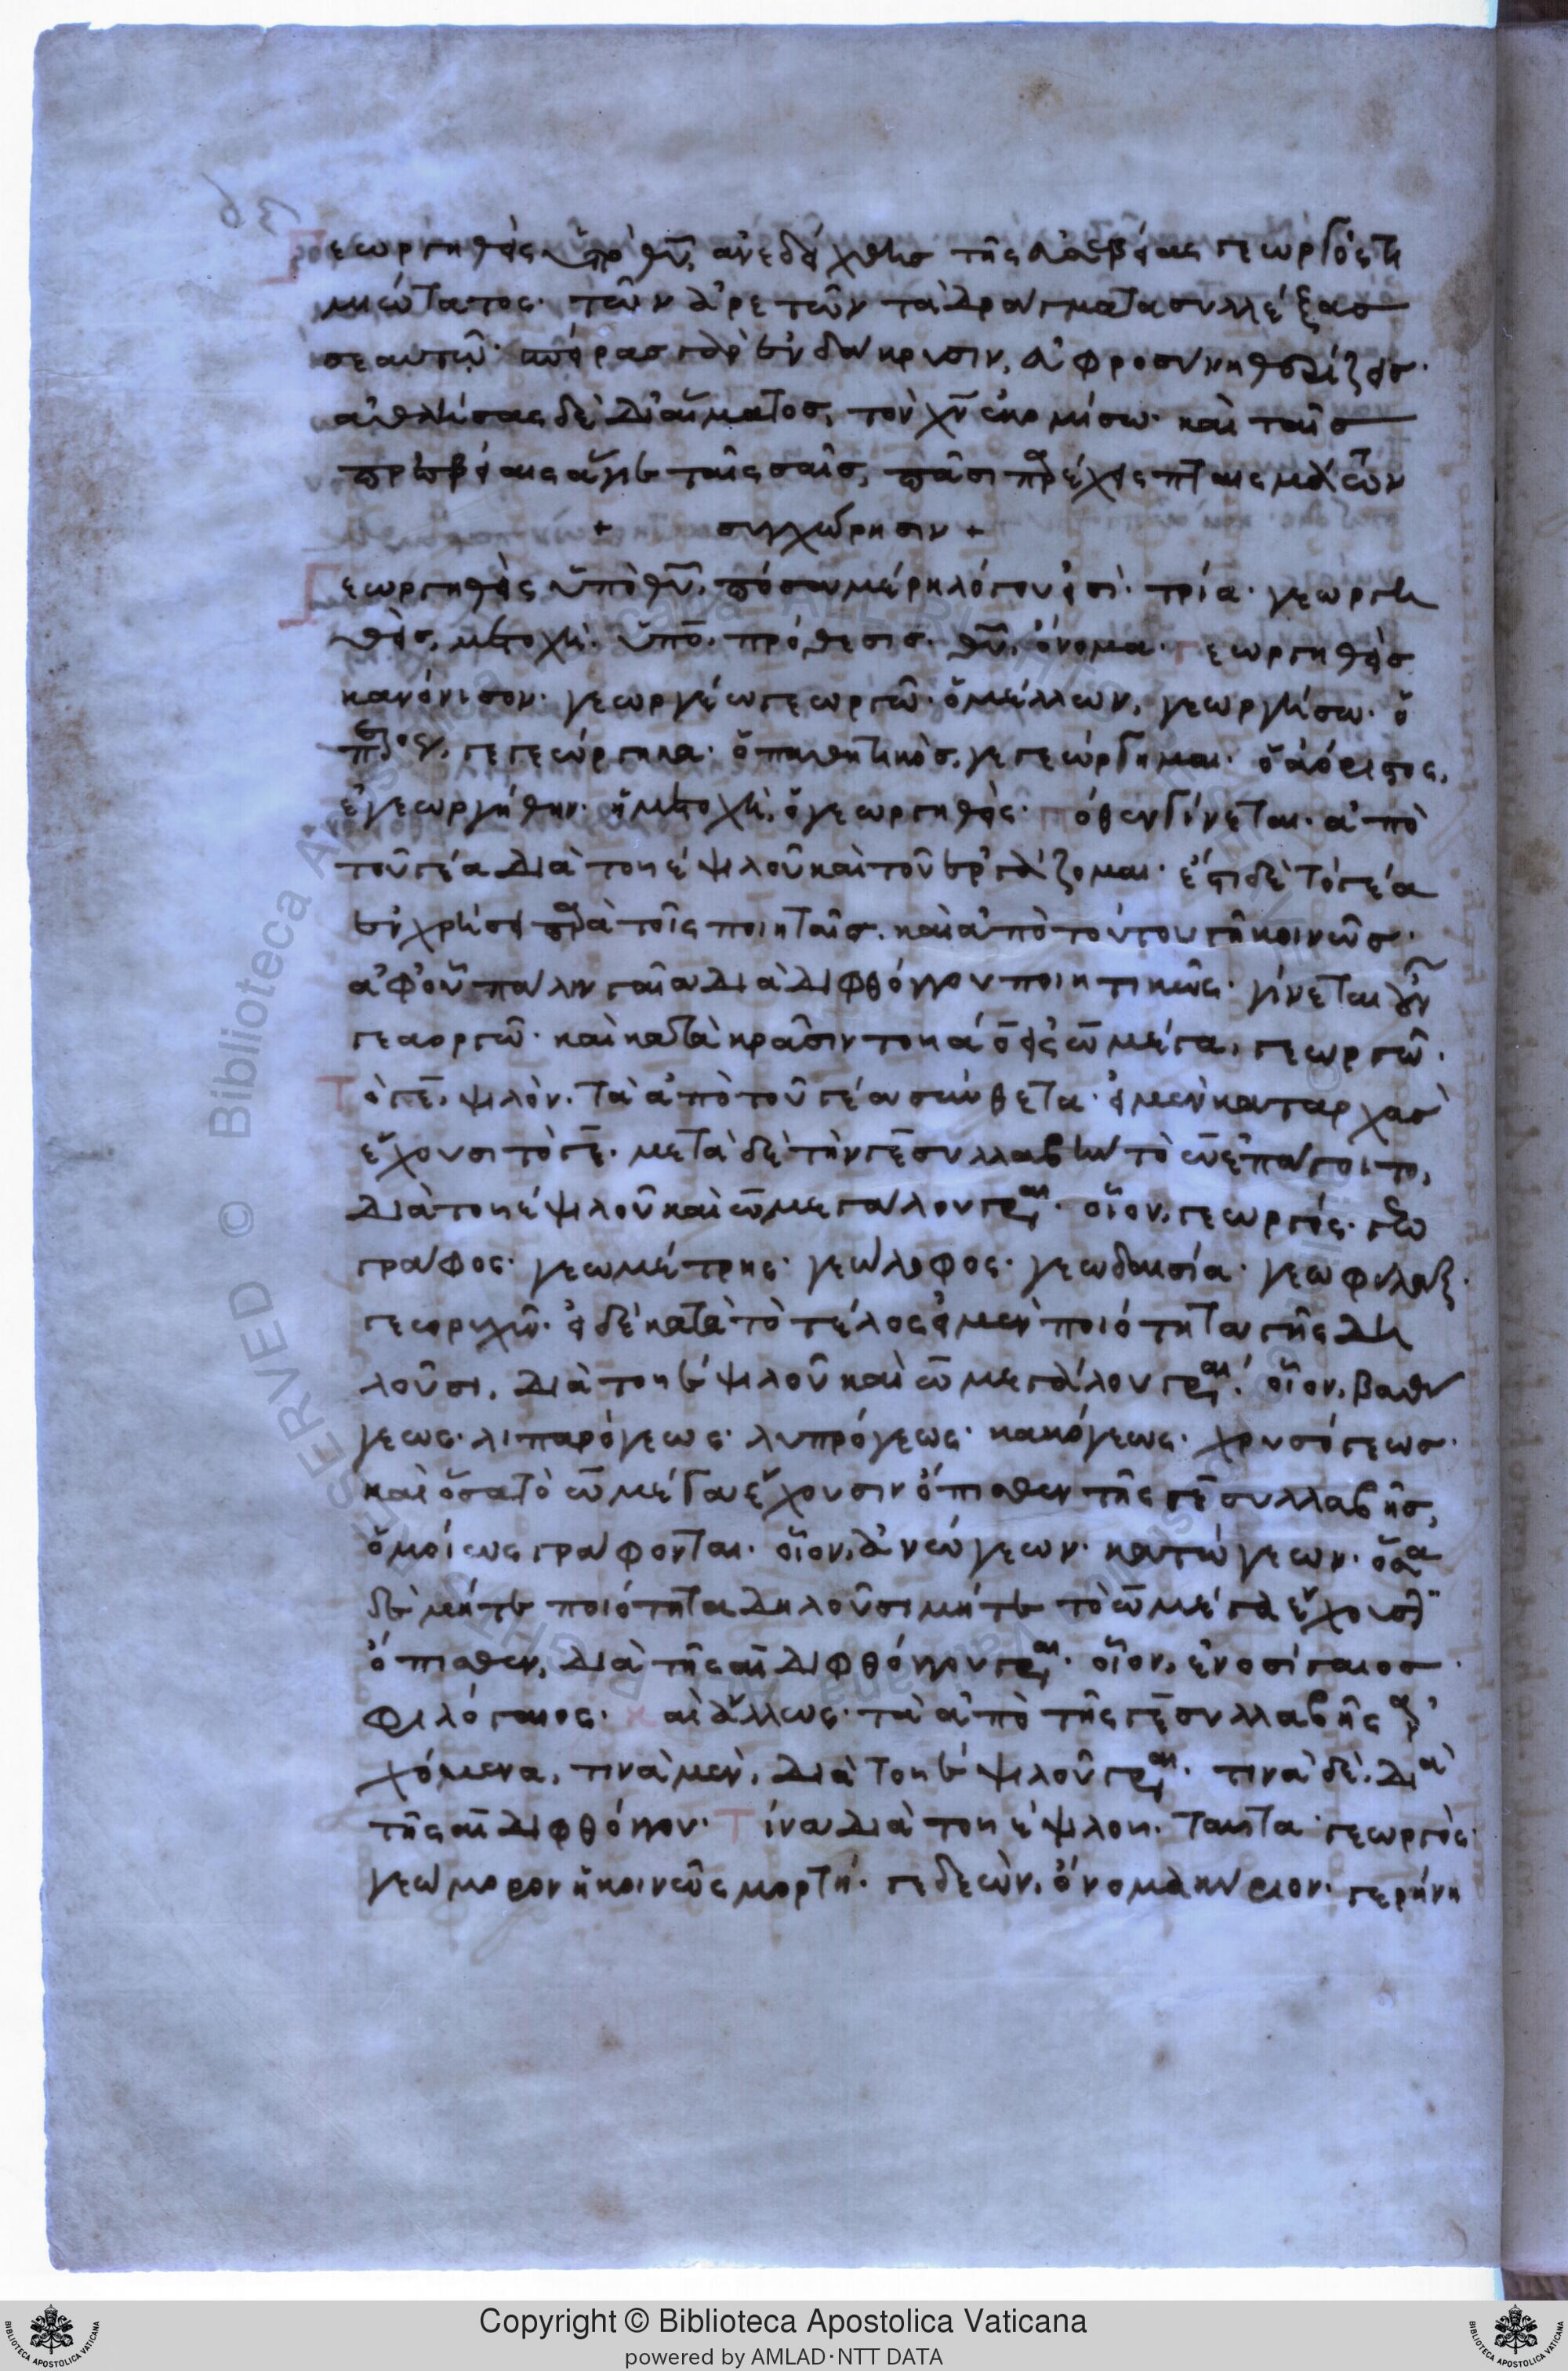 Γεωργηθεὶς ὑπὸ θῦ, ἀνεδείχθησ τῆς εὐσεβείας γεωργὸς τι
μιώτατος· τῶν ἀρετῶν τὰ δράγματα συλλέξασ
σεαυτῷ· σπείρας γὰρ ἐν δάκρυσιν, εὐφροσύνη θερίζεισ·
ἀθλήσας δὲ δι' αἵματος, τὸν χν̄ ἐκομίσω· καὶ ταῖσ
πρεσβείαις ἅγιε ταῖς σαῖσ, πᾶσι παρέχεις πταισμάτων
+ συγχώρησιν +
Γεωργηθεὶς ὑπὸ θῦ, πόσα μέρη λόγου εἰσί· τρία· γεωργη
θείσ, μετοχή· ὑπὸ, πρόθεσισ· θῦ, ὄνομα· Γεωργηθείσ
κανόνισον· γεωργέω γεωργῶ· ὁ μέλλων, γεωργήσω· ὁ
γεγεώργηκα· ὁ παθητικόσ, γεγεώργημαι· ὁ ἀόριστος,
ἐγεωργήθην· ἡ μετοχή, ὁ γεωργηθείς· πόθεν γίνεται· ἀπὸ
τοῦ γέα διὰ τοῦ ἐ ψιλοῦ καὶ τοῦ ἐργάζομαι· ἔστι δὲ τὸ γέα
ἐν χρήσει παρὰ τοῖς ποιηταῖσ, καὶ ἀπὸ τούτου γῆ κοινῶσ·
ἀφ' οὗ πάλιν γαῖα διὰ διφθόγγου ποιητικῶς· γίνεται οὖν
γεαοργῶ· καὶ κατὰ κρᾶσιν τοῦ α ο εἰς ω μέγα, γεωργῶ·
Τὸ γε, ψιλόν· τὰ ἀπὸ τοῦ γέα σύνθετα· εἰ μὲν καταρχὰσ
ἔχουσι τὸ γε· μετὰ δὲ τὴν γε συλλαβὴν τὸ ω ἐπάγοιτο,
διὰ τοῦ ἐ ψιλοῦ καὶ ω μεγάλου γράφεται· οἷον, γεωργός· γεω
γράφος· γεωμέτρης· γεώλοφος· γεωδαισία· γεωφύλαξ·
γεωρυχῶ· εἰ δὲ κατὰ τὸ τέλος εἰ μὲν ποιότητα γῆς δη
λοῦσι, διὰ τοῦ ἐ ψιλοῦ καὶ ω μεγάλου γράφεται· οἷον, βαθύ
γεως· λιπαρόγεως· λυπρόγεως· κακόγεως· χρυσόγεωσ·
καὶ ὅσα τὸ ω μέγα ἔχουσιν ὄπισθεν τῆς γε συλλαβῆσ,
ὁμοίως γράφονται· οἷον, ἀνώγεων· κατώγεων· ὅσα
δὲ μήτε ποιότητα δηλοῦσι μήτε τὸ ω μέγα ἔχουσιν
ὄπισθεν, διὰ τῆς αι διφθόγγου γράφεται· οἷον, ἐνοσίγαιοσ·
φιλόγαιος· καὶ ἄλλως· τὰ ἀπὸ τῆς γε συλλαβῆς ἀρ
χόμενα, τινὰ μὲν, διὰ τοῦ ἐ ψιλοῦ γράφεται· τινὰ δὲ, διὰ
τῆς αι διφθόγγου· Τίνα διὰ τοῦ ἐ ψιλοῦ· ταῦτα· γεωργός·
γεώμορον ἡ κοινῶς μορτή· γεδεών, ὄνομα κύριον· γερήνη